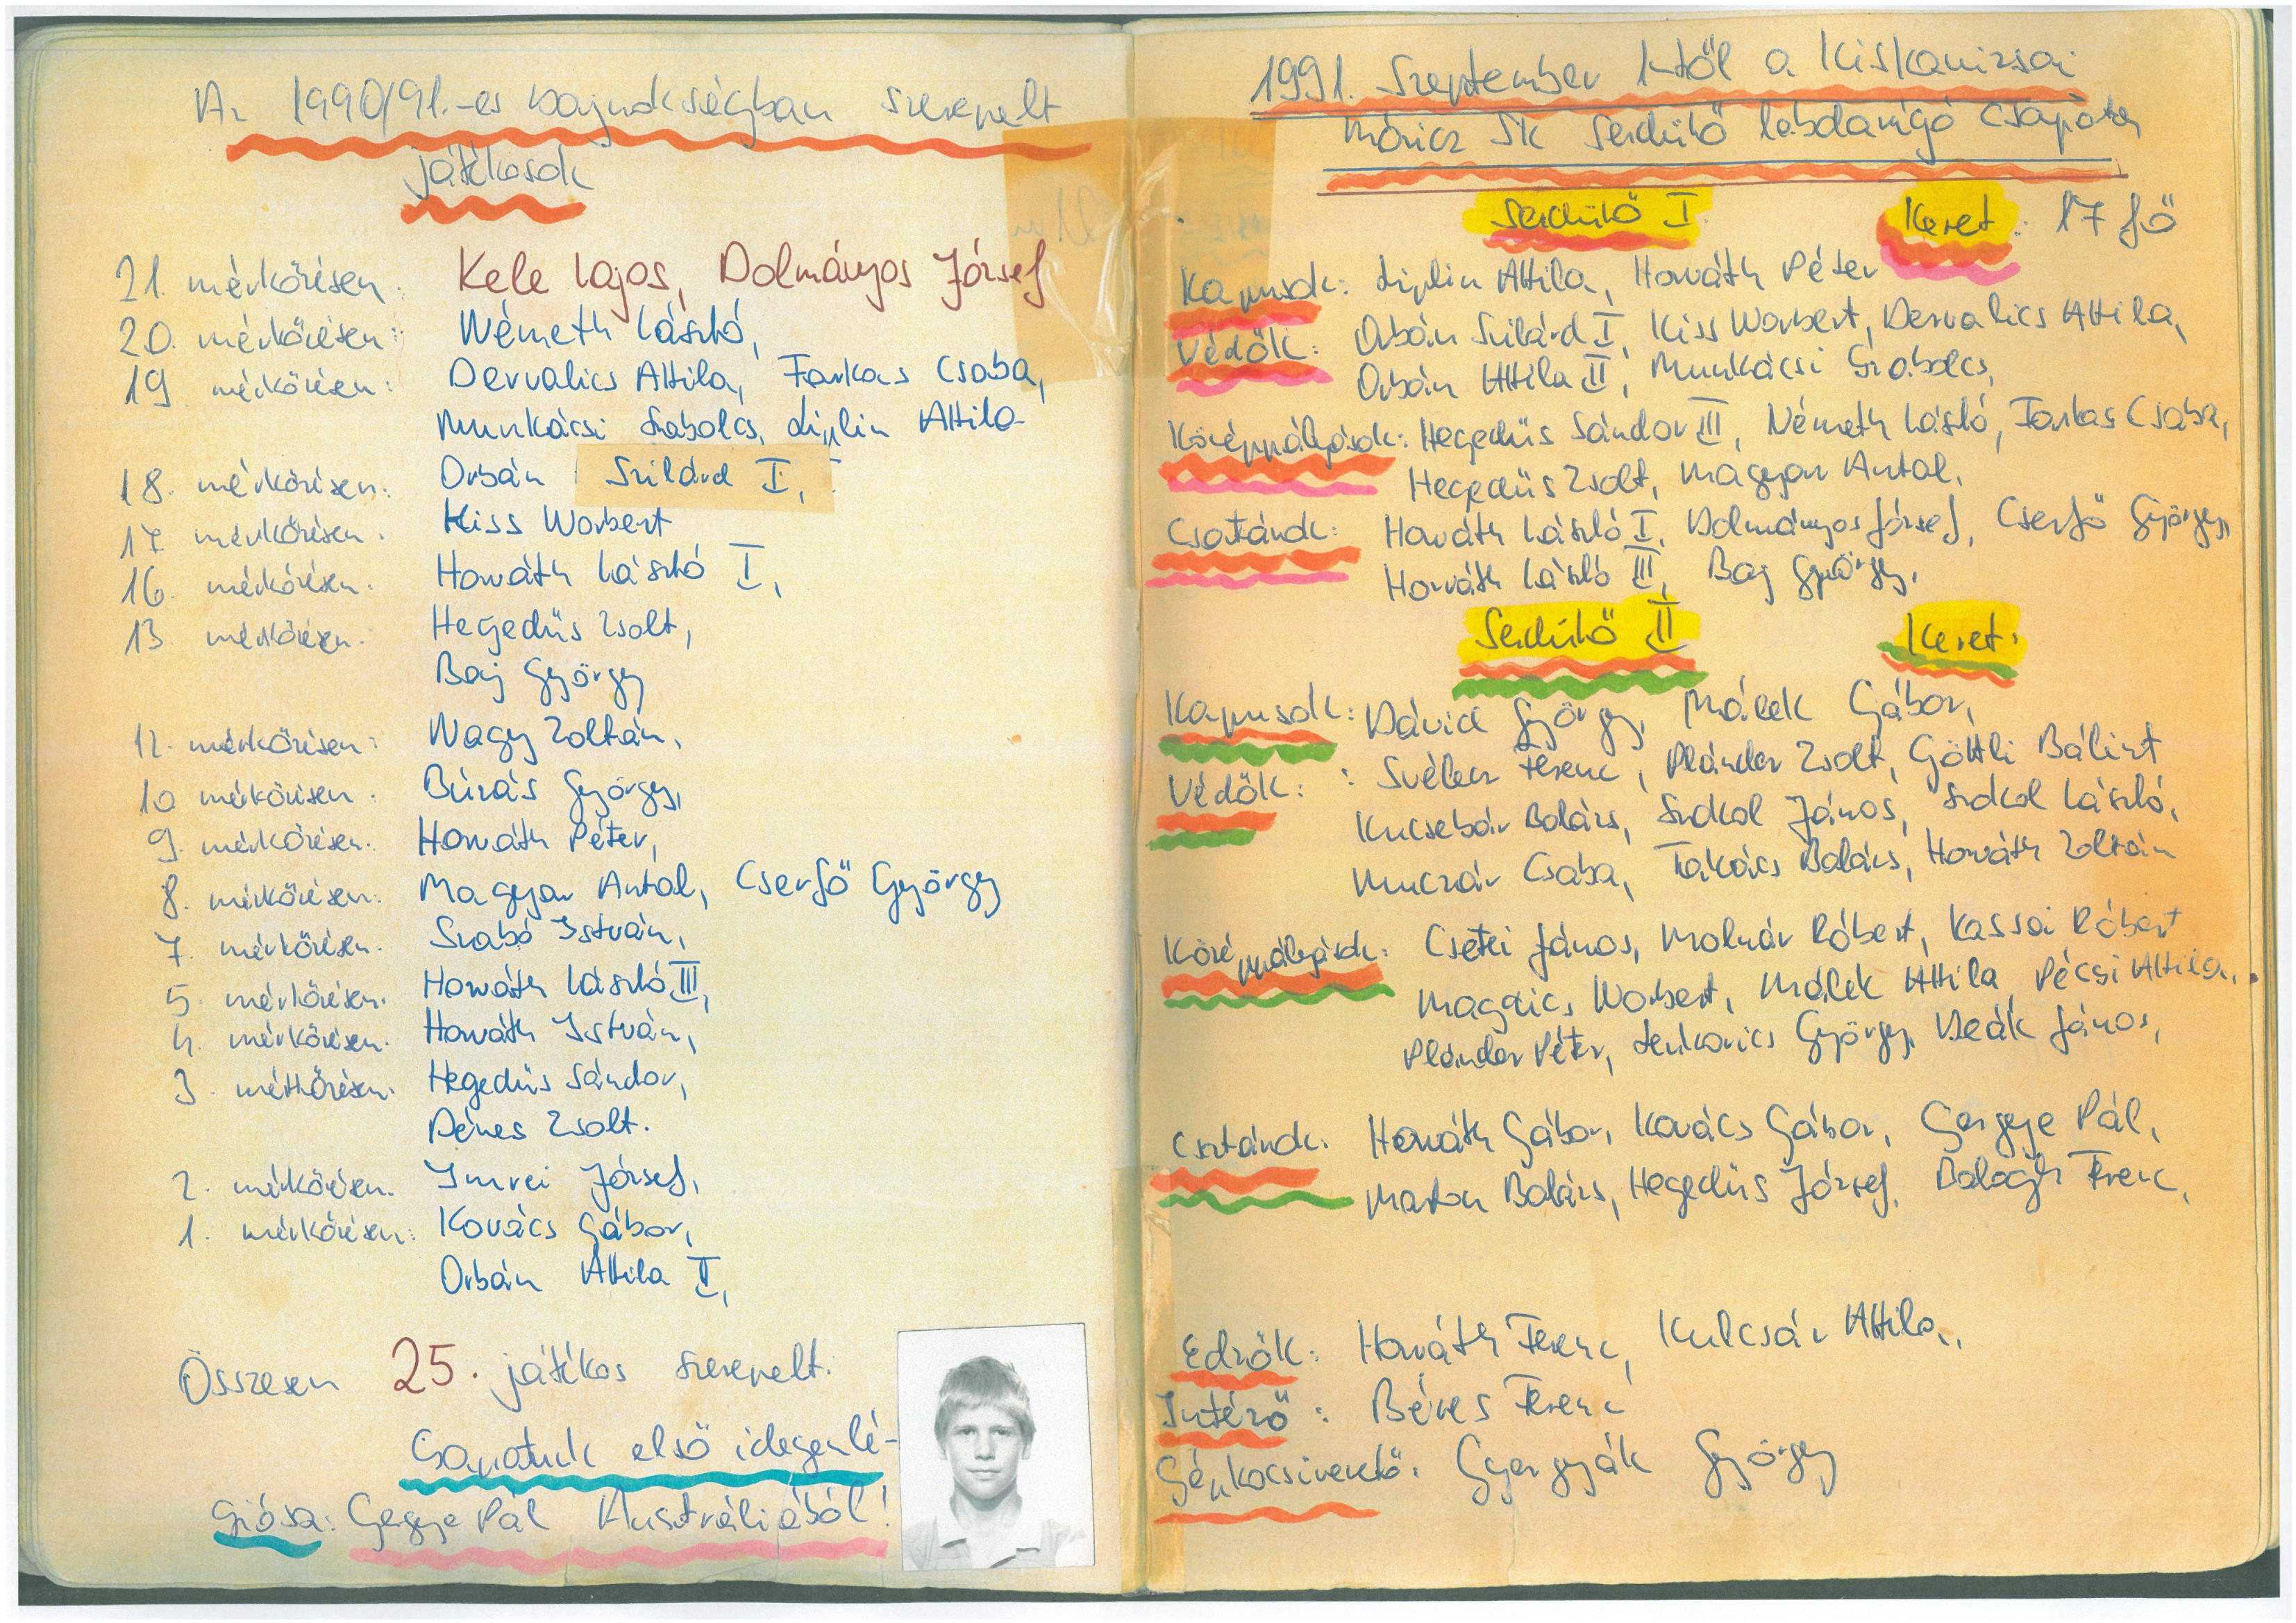 Az 1990/91.-es bajnokságban szerepelt
játékosok
21. mérkőzésen: Kele Lajos, Dolmányos József
20. mérkőzésen: Németh László,
19 mérkőzésen: Dervalics Attila, Farkas Csaba,
Munkácsi Szabolcs, Liplin Attila
18. mérkőzésen: Orbán Szilárd I,
17 mérkőzésen. Kiss Norbert
16. mérkőzésen. Horváth László I,
13. mérkőzésen. Hegedüs Zsolt,
Baj György
12. mérkőzésen: Nagy Zoltán,
10 mérkőzésen. Búzás György,
9. mérkőzésen. Horváth Péter,
8. mérkőzésen: Magyar Antal, Cserfő György
7. mérkőzésen. Szabó István,
5. mérkőzésen. Horváth László III,
4. mérkőzésen. Horváth István,
3. mérkőzésen. Hegedüs Sándor,
Dénes Zsolt.
2. mérkőzésen. Imrei József,
1. mérkőzésen: Kovács Gábor,
Orbán Attila II,
Összesen 25. játékos szerepelt.
Csapatunk első idegenlé-
giósa: Gergye Pál Ausztráliából!
1991. Szeptember 1-től a Kiskanizsai
Móricz SK Serdülő labdarúgó csapata
Serdülő I. Keret: 17 fő
Kapusok: Liplin Attila, Horváth Péter
Védők: Orbán Szilárd I, Kiss Norbert, Dervalics Attila,
Orbán Attila II, Munkácsi Szabolcs,
Középpályások: Hegedüs Sándor III, Németh László, Farkas Csaba,
Hegedüs Zsolt, Magyar Antal.
Csatárok: Horváth László I, Dolmányos József, Cserfő György,
Horváth László III, Baj György,
Serdülő II Keret:
Kapusok: Dávid György, Málek Gábor,
Védők: Svélecz Ferenc, Plánder Zsolt, Göttli Bálint
Kucsebár Balázs, Srakol János, Srakol László,
Munczár Csaba, Takács Balázs, Horváth Zoltán
Középpályások: Csetei János, Molnár Róbert, Kassai Róbert
Magdics Norbert, Málek Attila Pécsi Attila,
Plánder Péter, Lenkovics György, Deák János,
Csatárok. Horváth Gábor, Kovács Gábor, Gergye Pál,
Marton Balázs, Hegedüs József, Balogh Ferenc,
Edzők: Horváth Ferenc, Kulcsár Attila,
Intéző: Béres Ferenc
Gépkocsivezető: Gyergyák György